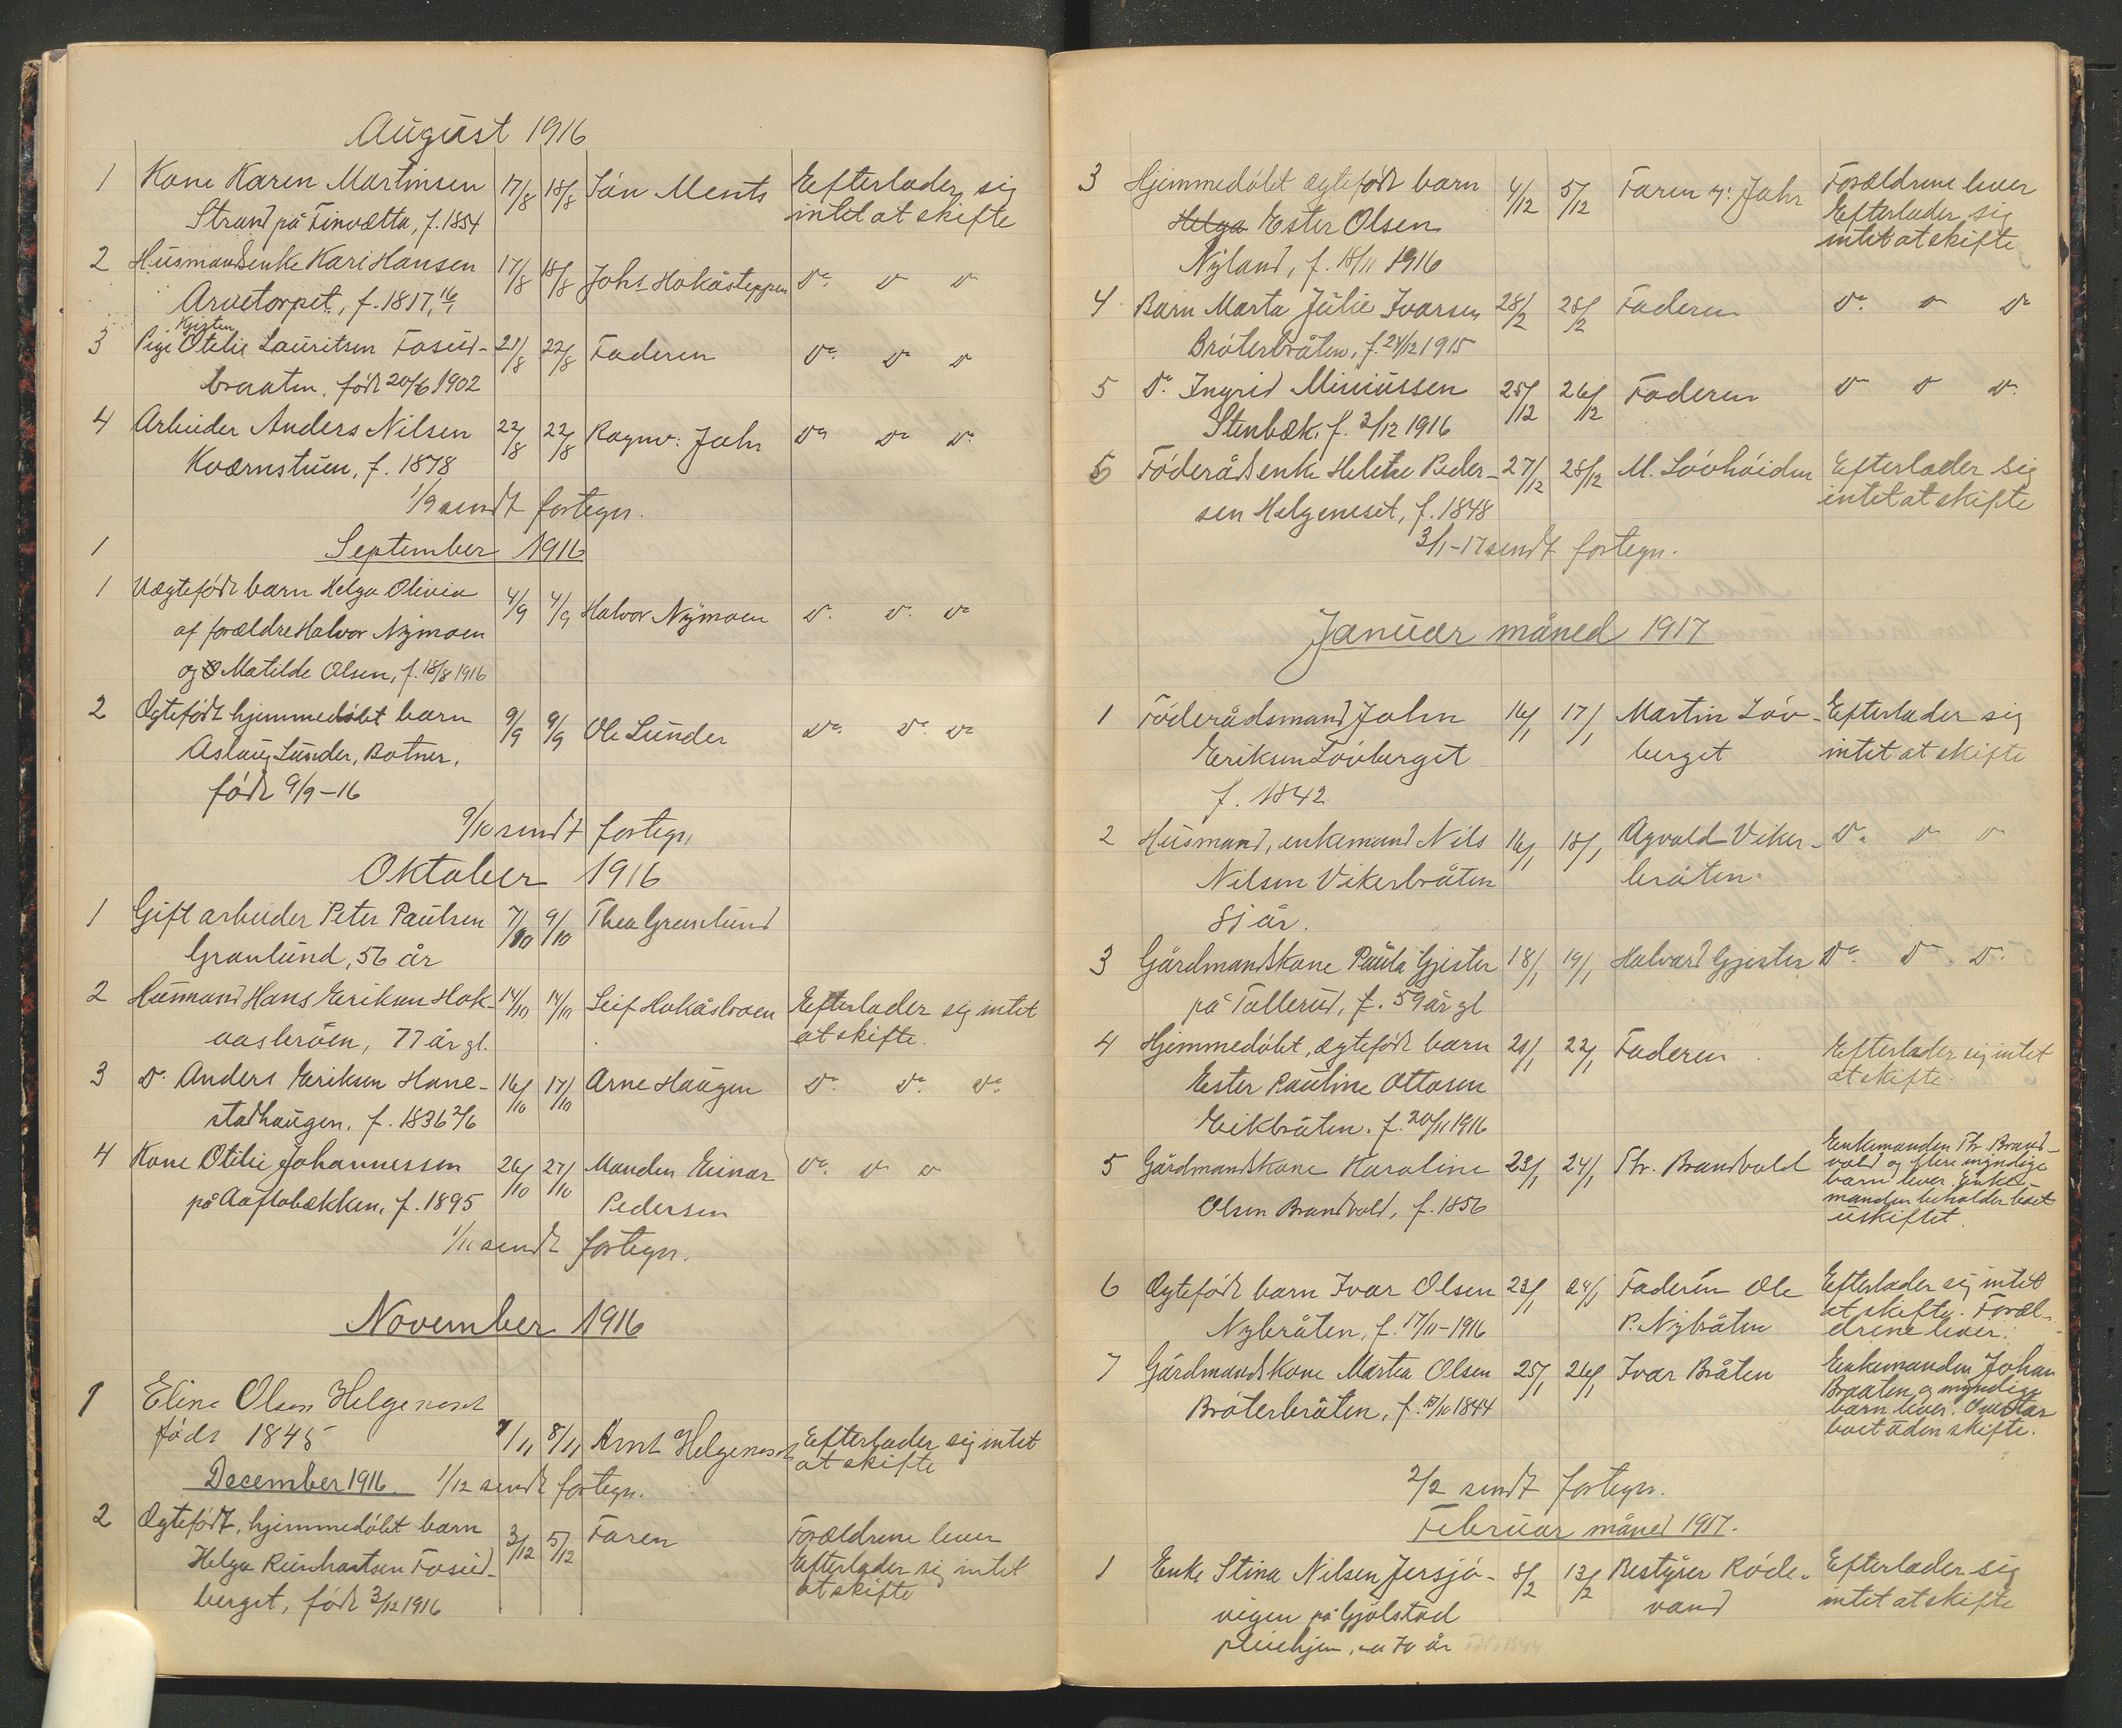 August 1916
1 Kone Karen Martinsen 17/8 18/8 Jón Ments Efterlader sig
Strand på Finvætta, f. 1854 intet at skifte
2 Husmandsenke Kari Hansen 17/8 18/8 Johs Hokåsteppen Do Do Do
Arvetorpet, f. 1817, 16/1
Kjisten
3 Pige Otelie Lauritsen Fosud- 21/8 22/8 Faderen Do Do Do
braaten, født 20/6 1902
4 Arbeider Anders Nilsen 22/8 22/8 Ragnv. Jahr Do Do Do
Kværnstuen, f. 1878
1/9 sendt fortegn.
1 September 1916
1 Uægtefødt barn Helga Olivia 4/9 4/9 Halvor Nymoen Do Do Do
af forældre Halvor Nymoen
og Matilde Olsen, f. 18/8 1916
2 Ægtefødt hjemmedøbt barn 9/9 9/9 Ole Lunder Do Do Do
Aslaug Lunder, Botner,
født 9/9-16
9/10 sendt fortegn.
Oktober 1916
1 Gift arbeider Peter Paulsen 7/10 9/10 Thea Granlund
Granlund, 56 år
2 Husmand Hans Eriksen Hok- 14/10 14/10 Leif Hokåsbroen Efterlader sig intet
aasbröen, 77 år gl. at skifte.
3 Do Anders Eriksen Hane- 16/10 17/10 Arne Haugen Do Do Do
stadhaugen, f. 1836 2/6
4 Kone Otilie Johannessen 26/10 27/10 Manden Einar Do Do Do
på Aaflobækken, f. 1895 Pedersen
1/11 sendt fortegn.
November 1916
1 Eline Olsen Helgeneset
født 1845 7/11 8/11 Arnt Helgeneset Efterlader sig intet
at skifte
December 1916 1/12 sendt fortegn.
2 Ægtefødt, hjemmedøbt barn 3/12 5/12 Faren Forældrene lever
Helga Reinhartsen Fosud- Efterlader sig intet
berget, født 3/12 1916 at skifte
3 Hjemmedøbt ægtefødt barn 4/12 5/12 Faren Jahr Forældrene lever
Helga Ester Olsen Efterlader sig
Nyland, f. 18/11 1916 intet at skifte
4 Barn Marta Julie Ivarsen 28/2 28/2 Faderen Do Do Do
Bröterbråten, f. 24/12 1915
5 Do Ingrid Miniussen 25/12 26/12 Faderen Do Do Do
Stenbæk, f. 2/12 1916
6 Föderådsenke Helene Peder- 27/12 28/12 M. Lövhöiden Efterlader sig
sen Helgeneset, f. 1848 intet at skifte
3/1-17 sendt fortegn.
Januar måned 1917
1 Föderådsmand John 16/1 17/1 Martin Löv- Efterlader sig
Eriksen Lövberget berget intet at skifte
f. 1842
2 Husmand, enkemand Nils 16/1 18/1 Agvald Viker- Do Do Do
Nilsen Vikerbråten bråten.
81 år.
3 Gårdmandskone Paula Gjister 18/1 19/1 Halvard Gjister Do Do Do
på Tallerud, f. 59 år gl
4 Hjemmedøbt, ægtefødt barn 21/1 22/1 Faderen Efterlader sig intet
Ester Pauline Ottosen at skifte.
Eikbråten. f. 20/11 1916
5 Gårdmandskone Karoline 23/1 24/1 Thr. Brandvold Enkemanden Thr. Brand-
Olsen Brandvold, f. 1856 vold og flere myndige
barn lever. Enke-
manden beholder boet
uskiftet.
6 Ægtefødt barn Ivar Olsen 23/1 24/1 Faderen Ole Efterlader sig intet
Nybråten, f. 17/11-1916 P. Nybråten at skifte. Foræl-
drene lever.
7 Gårdmandskone Martea Olsen 25/1 26/1 Ivar Bråten Enkemanden Johan
Bröterbråten, f. 13/10 1844 Braaten og myndige
barn lever. Overtar
boet uden skifte.
2/2 sendt fortegn.
Februar måned 1917.
1 Enke Stina Nilsen Jersjö- 8/2 13/2 Bestyrer Röde- Efterlader sig
vigen på Gjölstad vand intet at skifte
pleiehjem, ca 70 år Født 1844